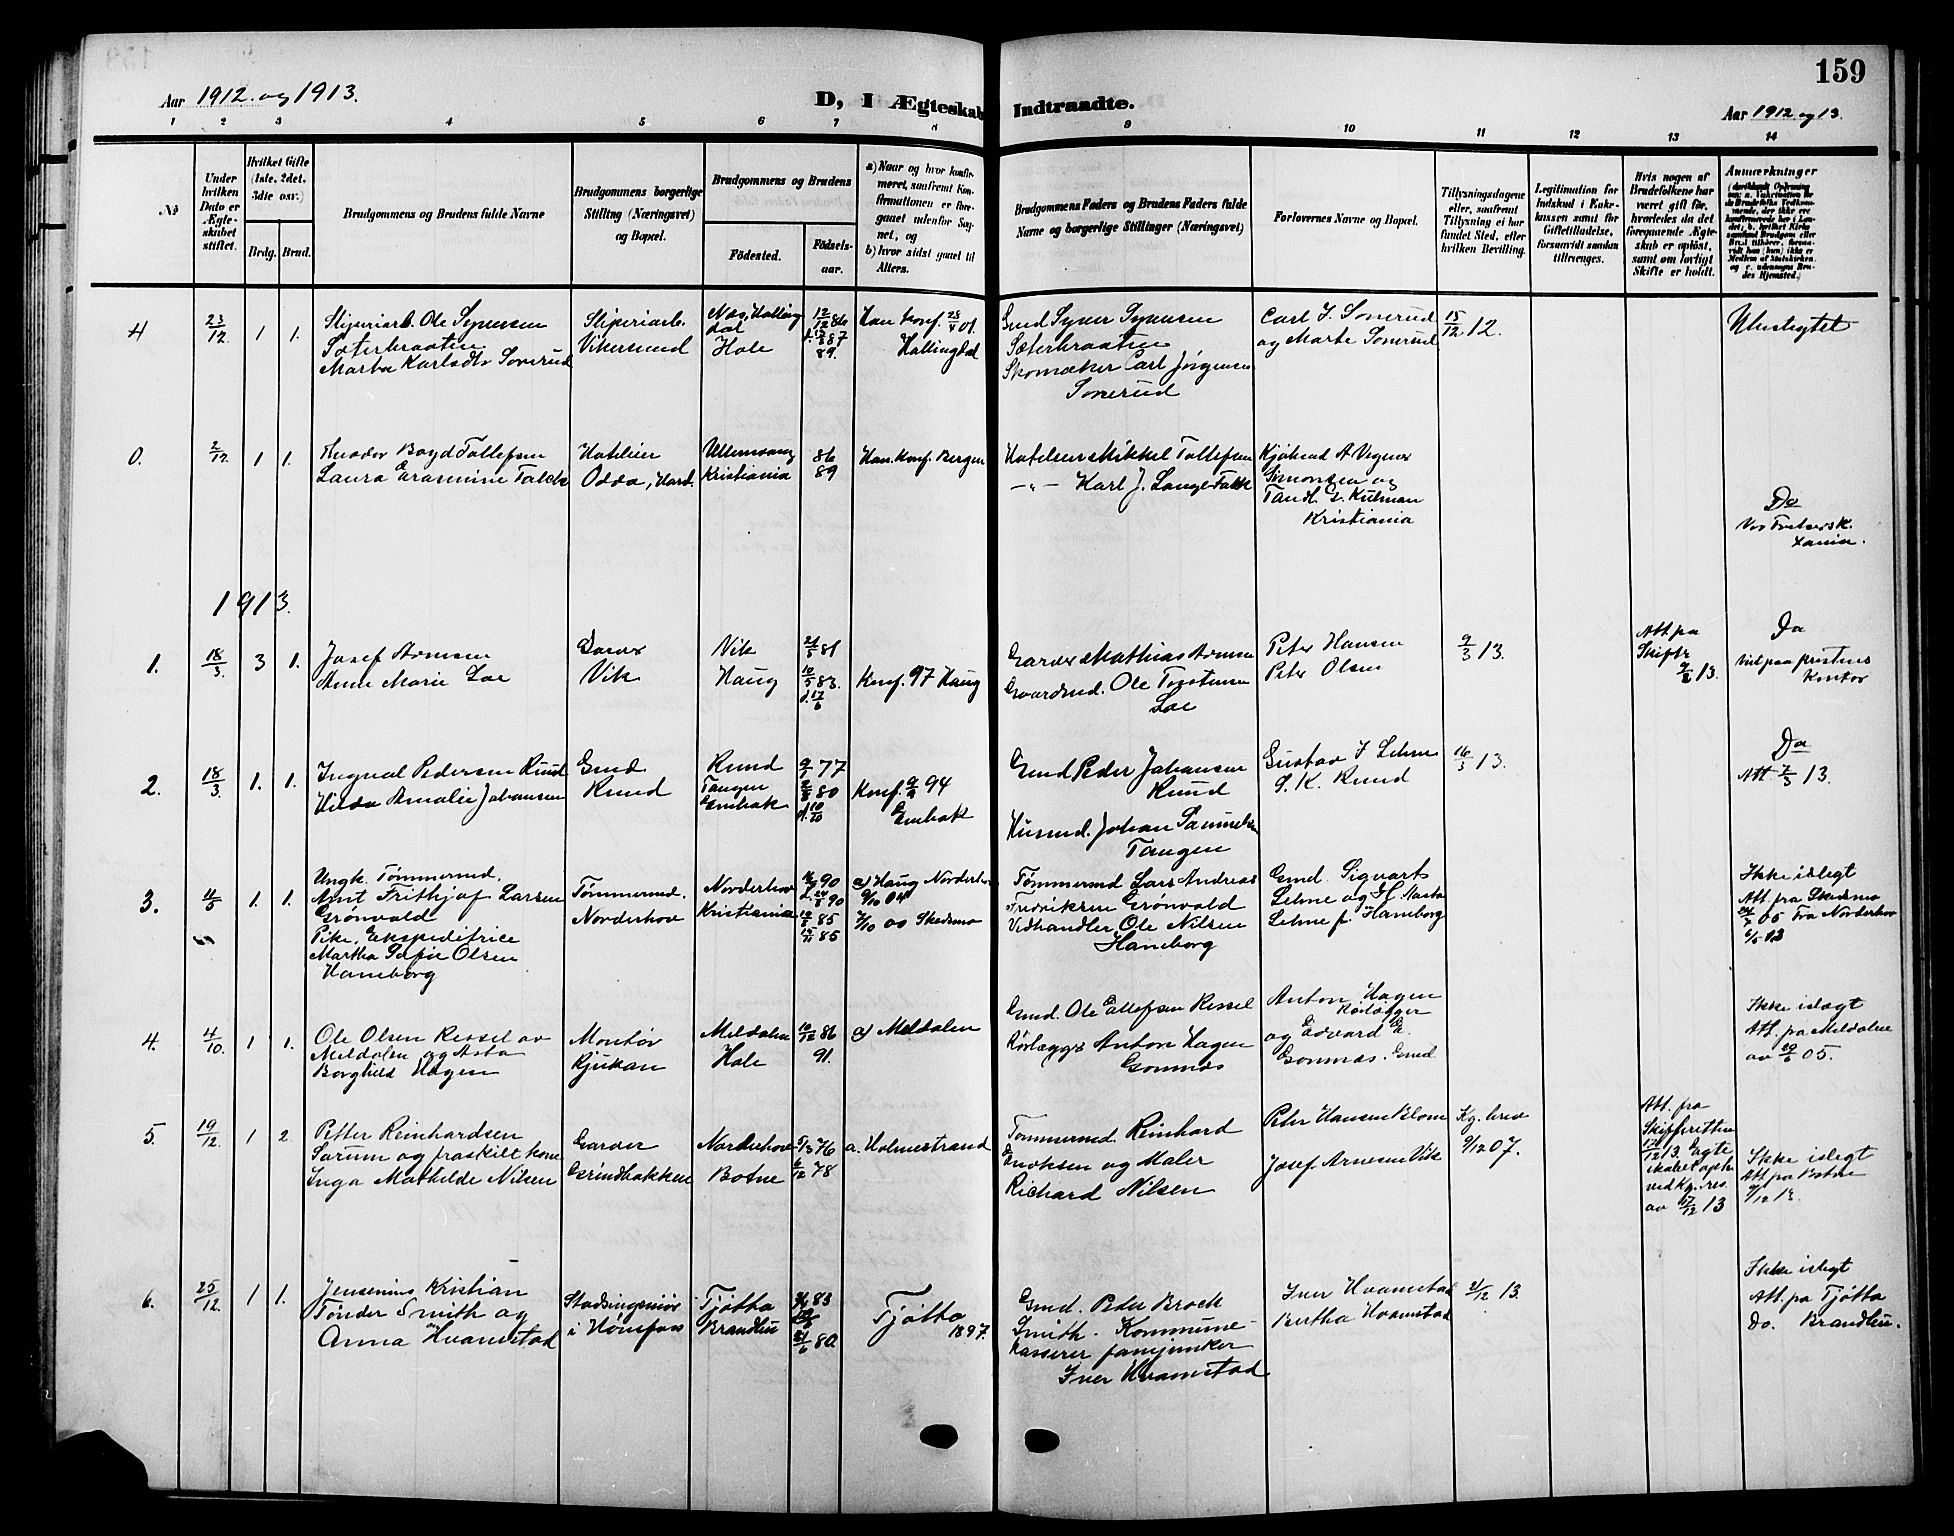 159
Aar 1912 og 1913.
D, I Ægteskab Indtraadte.
Aar 1912 og 13.
1 2 3 4 5 6 7 8 9 10 11 12 13 14
№
Under hvilken Dato er Ægteskabet stiftet.
Hvilket Gifte (1ste, 2det, 3die osv.)
Brdg. Brud.
Brudgommens og Brudens fulde Navne
Brudgommens borgerlige Stilling (Næringsvei) og Bopæl.
Brudgommens og Brudens
Fødested.
Fødselsaar.
a) Naar og hvor konfirmeret, saafremt Konfirmationen er foregaaet udenfor Sognet, og
b) hvor sidst gaaet til Alters.
Brudgommens Faders og Brudens Faders fulde Navne og borgerlige Stillinger (Næringsvei)
Forlovernes Navne og Bopæl.
Tillysningsdagene eller, saafremt Tillysning ei har fundet Sted, efter hvilken Bevilling.
Legitimation for Indskud i Enkekassen samt for Giftetilladelse, forsaavidt saadan tiltrænges.
Hvis nogen af Brudefolkene har været gift før, hvorledes da det foregaaende Ægteskab er opløst, samt om lovligt Skifte er holdt.
Anmærkninger
4 23/12 1 1.
Sliperiarb. Ole Syversen
Sæterbraaten
Martha Karlsdtr Sonerud
Sliperiarb.
Vikersund
Nes, Hallingdal
Hole
12/12 86
89.
Han konf. 01.
Hallingdal
Gmd Syver Syversen
Sæterbraaten
Skomaker Carl Jørgensen
Sonerud
Carl J. Sonerud
og Marte Sonerud
15/12 12.
Ubeslegtet
0. 2/12 1 1.
Boyd Tollefsen
Laura Erasmine Falck
Hoteleier
Odda, Hard.
Ullensvang
Kristiania
86
89
Han. Konf. Bergen
Hoteleier Mikkel Tollefsen
-"- Karl J. Lange Falck
Kjøbmd A Wegner
Simonsen og
Kristiania
Do
1913.
1. 18/3 3 1.
Josef Arnesen
Anne Marie Loe
Garver
Vik
Vik
Haug
21/5 81
10/5 83.
d. 17/6
Konf. 97 Haug
Garver Mathias Arnesen
Gaardmd. Ole Torstensen
Loe
Peter Hansen
Peter Olsen
9/3 13.
Att. fra
Skiftr
13.
Do
Viet paa prestens
kontor
2. 18/3 1. 1.
Ingval Pedersen Ruud
Hilda Amalie Johansen
Gmd
Ruud
Ruud
Tangen
Enebak
9/1 77
80
d. 10/10
Konf. 94
Enebak
Gmd Peder Johansen
Ruud
Husmd. Johan Samuelsen
Tangen
Gustav J Lehne
S. K. Ruud
16/3 13.
Do
Att. 7/3 13.
3. 4/5 1. 1.
Ungk. Tømmermd.
Arnt Frithjof Larsen
Grønvold
Pike, Ekspeditrice
Martha Sofie Olsen
Haneborg
Tømmermd.
Norderhov
Norderhov
Kristiania
90
90
85
85
a) Haug Norderhov
9/10 04
7/10 00 Skedsmo
Tømmermd Lars Andreas
Fredriksen Grønvold
Vedhandler Ole Nilsen
Haneborg
Gmd. Sigvart
Lehne og
Lehne f. Haneborg
Ikke islegt
Att. fra Skedsmo
05 Fra Norderhov
13
4. 4/10. 1 1.
Ole Olsen Ressel av
Meldalen og Asta
Borghild Hagen
Montør
Rjukan
Meldalen
Hole
10/12 86
91.
a) Meldalen
Gmd. Ole Ellefsen Ressel
Rørlægger Anton Hagen
Gomnæs
Anton Hagen
Rørlægger
og Edvard E.
Gomnæs. Gmd.
Ikke islegt
Att. fra Meldalen
av 29/6 05.
5. 19/12. 1 2.
Petter Reinhardsen
Sørum og fraskilt kone
Inga Mathilde Nilsen
Garver
Grindbakken
Norderhov
Botne
5/3 76
6/12 78
a. Holmestrand
Tømmermd. Reinhard
Enoksen og Maler
Richard Nilsen
Peter Hansen Blom
Josef Arnesen Vik
Kg. brev
9/12 07.
Att. fra
Skifteretten
17/12 13. Egteskabet oph.
ved Kg. res.
av 17/12 13
Ikke islegt
Att. fra Botne
6. 25/12. 1 1.
Jensenius Kristian
Tønder Smith og
Anna Hvamstad
Stadsingeniør
i Hønefoss
Tjøtta
Brandbu
3/4 83
21/6 80
Tjøtta
1897.
Gmd. Peter Brock
Smith. Kommunekasserer fanejunker
Iver Hvamstad
Iver Hvamstad
Bertha Hvamstad
21/12 13.
Ikke islegt
Att. fra Tjøtta
Do. Brandbu.